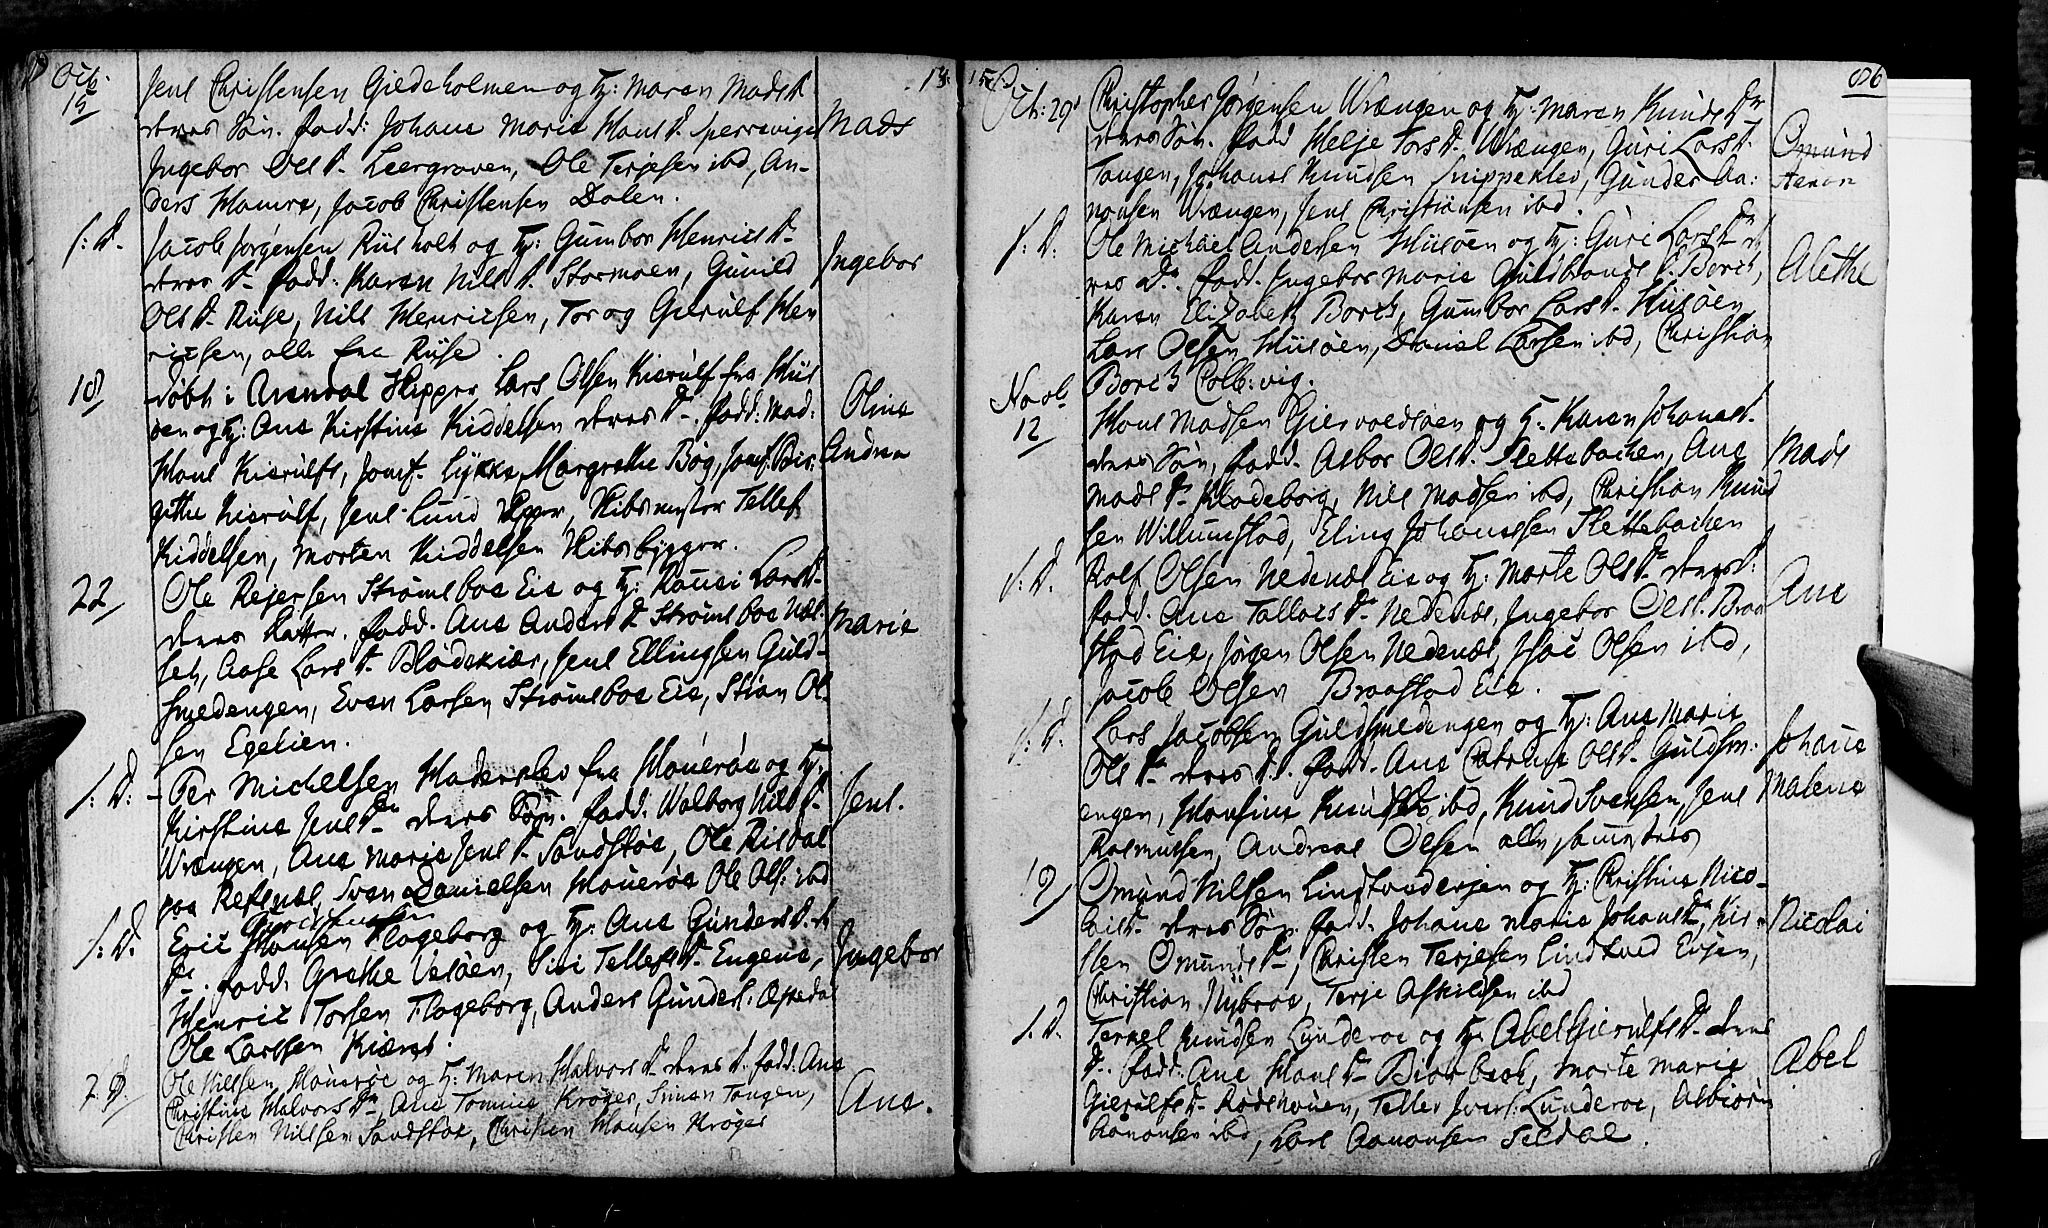 Octb: 15
Jens Christensen Gjedeholmen og H: Maren Mads D.
deres Søn. fadd: Johane Marie Hans D. Sperrevige
Ingebor Ols D. Leergraven, Ole Terjesen ibd, An-
ders Hamre, Jacob Christensen Dalen.
Mads
13
f: D.
Jacob Jørgensen Riisholt og H: Gumbor Henrics D.
deres D. fadd: Karen Nils D. Stormoen, Gunild
Ols D. Riise, Nils Henricsen, Tor og Gierulf Hen
ricsen, alle fra Riise.
Ingebor
18
døbt i Arendal Skipper Lars Olsen Kierulf fra Hiis
øen og H: Ane Kirstine Kiddelsen deres D. fadd: Mad:
Hans Kierulfs, Jomf. Lykke, Margrethe Bøg, Jomf: Bir:
githe Kierulf, Jens Lund Skipper, Skibsmester Tellef
Kiddelsen, Morten Kiddelsen Skibsbygger.
Oline
Andrea
22
Ole Rejersen Strømsboe Eie og H: Lars D.
deres Datter. fadd. Ane Anders D. Strømsboe Næs
set, Aase Lars D. Blødekiær, Jens Ellingsen Guld-
smedengen, Even Larsen Strømsboe Eie, Stian Ol-
sen Egekien.
Marie
f: D:
Per Michelsen Haderslev fra Hauerøe og H.
Kirstine Jens D. deres Søn. fadd. Walborg Nils D.
Wrængen, Ane Marie Jens D. Sandstøe, Ole Risdal
paa Refsnæs, Sven Danielsen Hauerøe Ole Ols: ibd
Jens.
f: D.
Eric Hansen Flageborg og H: Ane Gunders D. d
D. fadd: Grethe Vesøen, Siri Tellefs D. Engene,
Henric Torsen Flageborg, Anders Gunders: Æskedal
Ole Larssen Kiærs.
Ingebor
f: D.
Ole Nilssen Hauerøe og H: Maren Halvors D. deres D. fadd: Ane
Christine Halvors D., Ane Tomine Krøger, Simen Tangen,
Christen Nilssen Sandstøe, Christen Hansen Krøger
Ane.
15
86
Octb: 29
Christopher Jørgensen Wrængen og H: Maren Knuds D.
deres Søn. fadd Helje Tors D. Wrængen, Guri Lars D.
Tangen, Johanes Knudsen Snippekled, Gunder Aa:
nonsen Wrængen, Jens Christiansen ibd.
Omund
f: D:
Ole Michael Andersen Hiisøen og H: Guri Lars D. de
res D. fadd. Ingebor Marie Guldbrands D. Borch,
Karen Elizabeth Borch, Gumbor Lars D. Hiisøen
Lars Olsen Hiisøen, Daniel Larsen ibd, Christian
Borch Colb:vig.
Alethe
Novb
12
Hans Madsen Giervoldsøen og H. Karen Johanes D.
deres Søn, fadd. Asbor Ols D. Slettebachen, Ane
Mads D. Klødeborg, Nils Madsen ibd, Christian Knud
sen Willumstad, Eling Johanssen Slettebachen
Mads
f: D.
Rolf Olsen Nedenæs Eie og H: Marte Ols D. deres D:
fadd: Ane Tallacs D. Nedenæs, Ingebor Ols D. Braa
stad Eie, Jørgen Olsen Nedenæs, Isac Olsen ibd,
Jacob Olsen Braastad Eie.
Ane
f: D.
Lars Jacobsen Guldsmedengen og H: Ane Marie
Ols D. deres D. fadd. Ane Cathrine Ols D. Guldsm:
engen, Hansine Knuds D. ibd, Knud Svensen, Jens
Rasmussen, Andreas Olsen alle sammesteds
Johane
Malene
19
Omund Nilsen Lindtvedeejen og H: Christine Nico-
lais D. deres Søn. fadd. Johane Marie Johans D., Kir-
sten Omunds D., Christen Terjesen Lindtved Eijen,
Christian Nybroe, Terje Askildsen ibd
Nicolai
f. D.
Terkel Knudsen Lunderoe og H: Abel Gierulfs D. deres
D. fadd: Ane Hans D. Biorbech, Marte Marie
Gierulfs D. Rødshouen, Tellef Ivers: Lunderoe, Asbiørn
Aanonsen ibd, Lars Aanonsen Seldal.
Abel